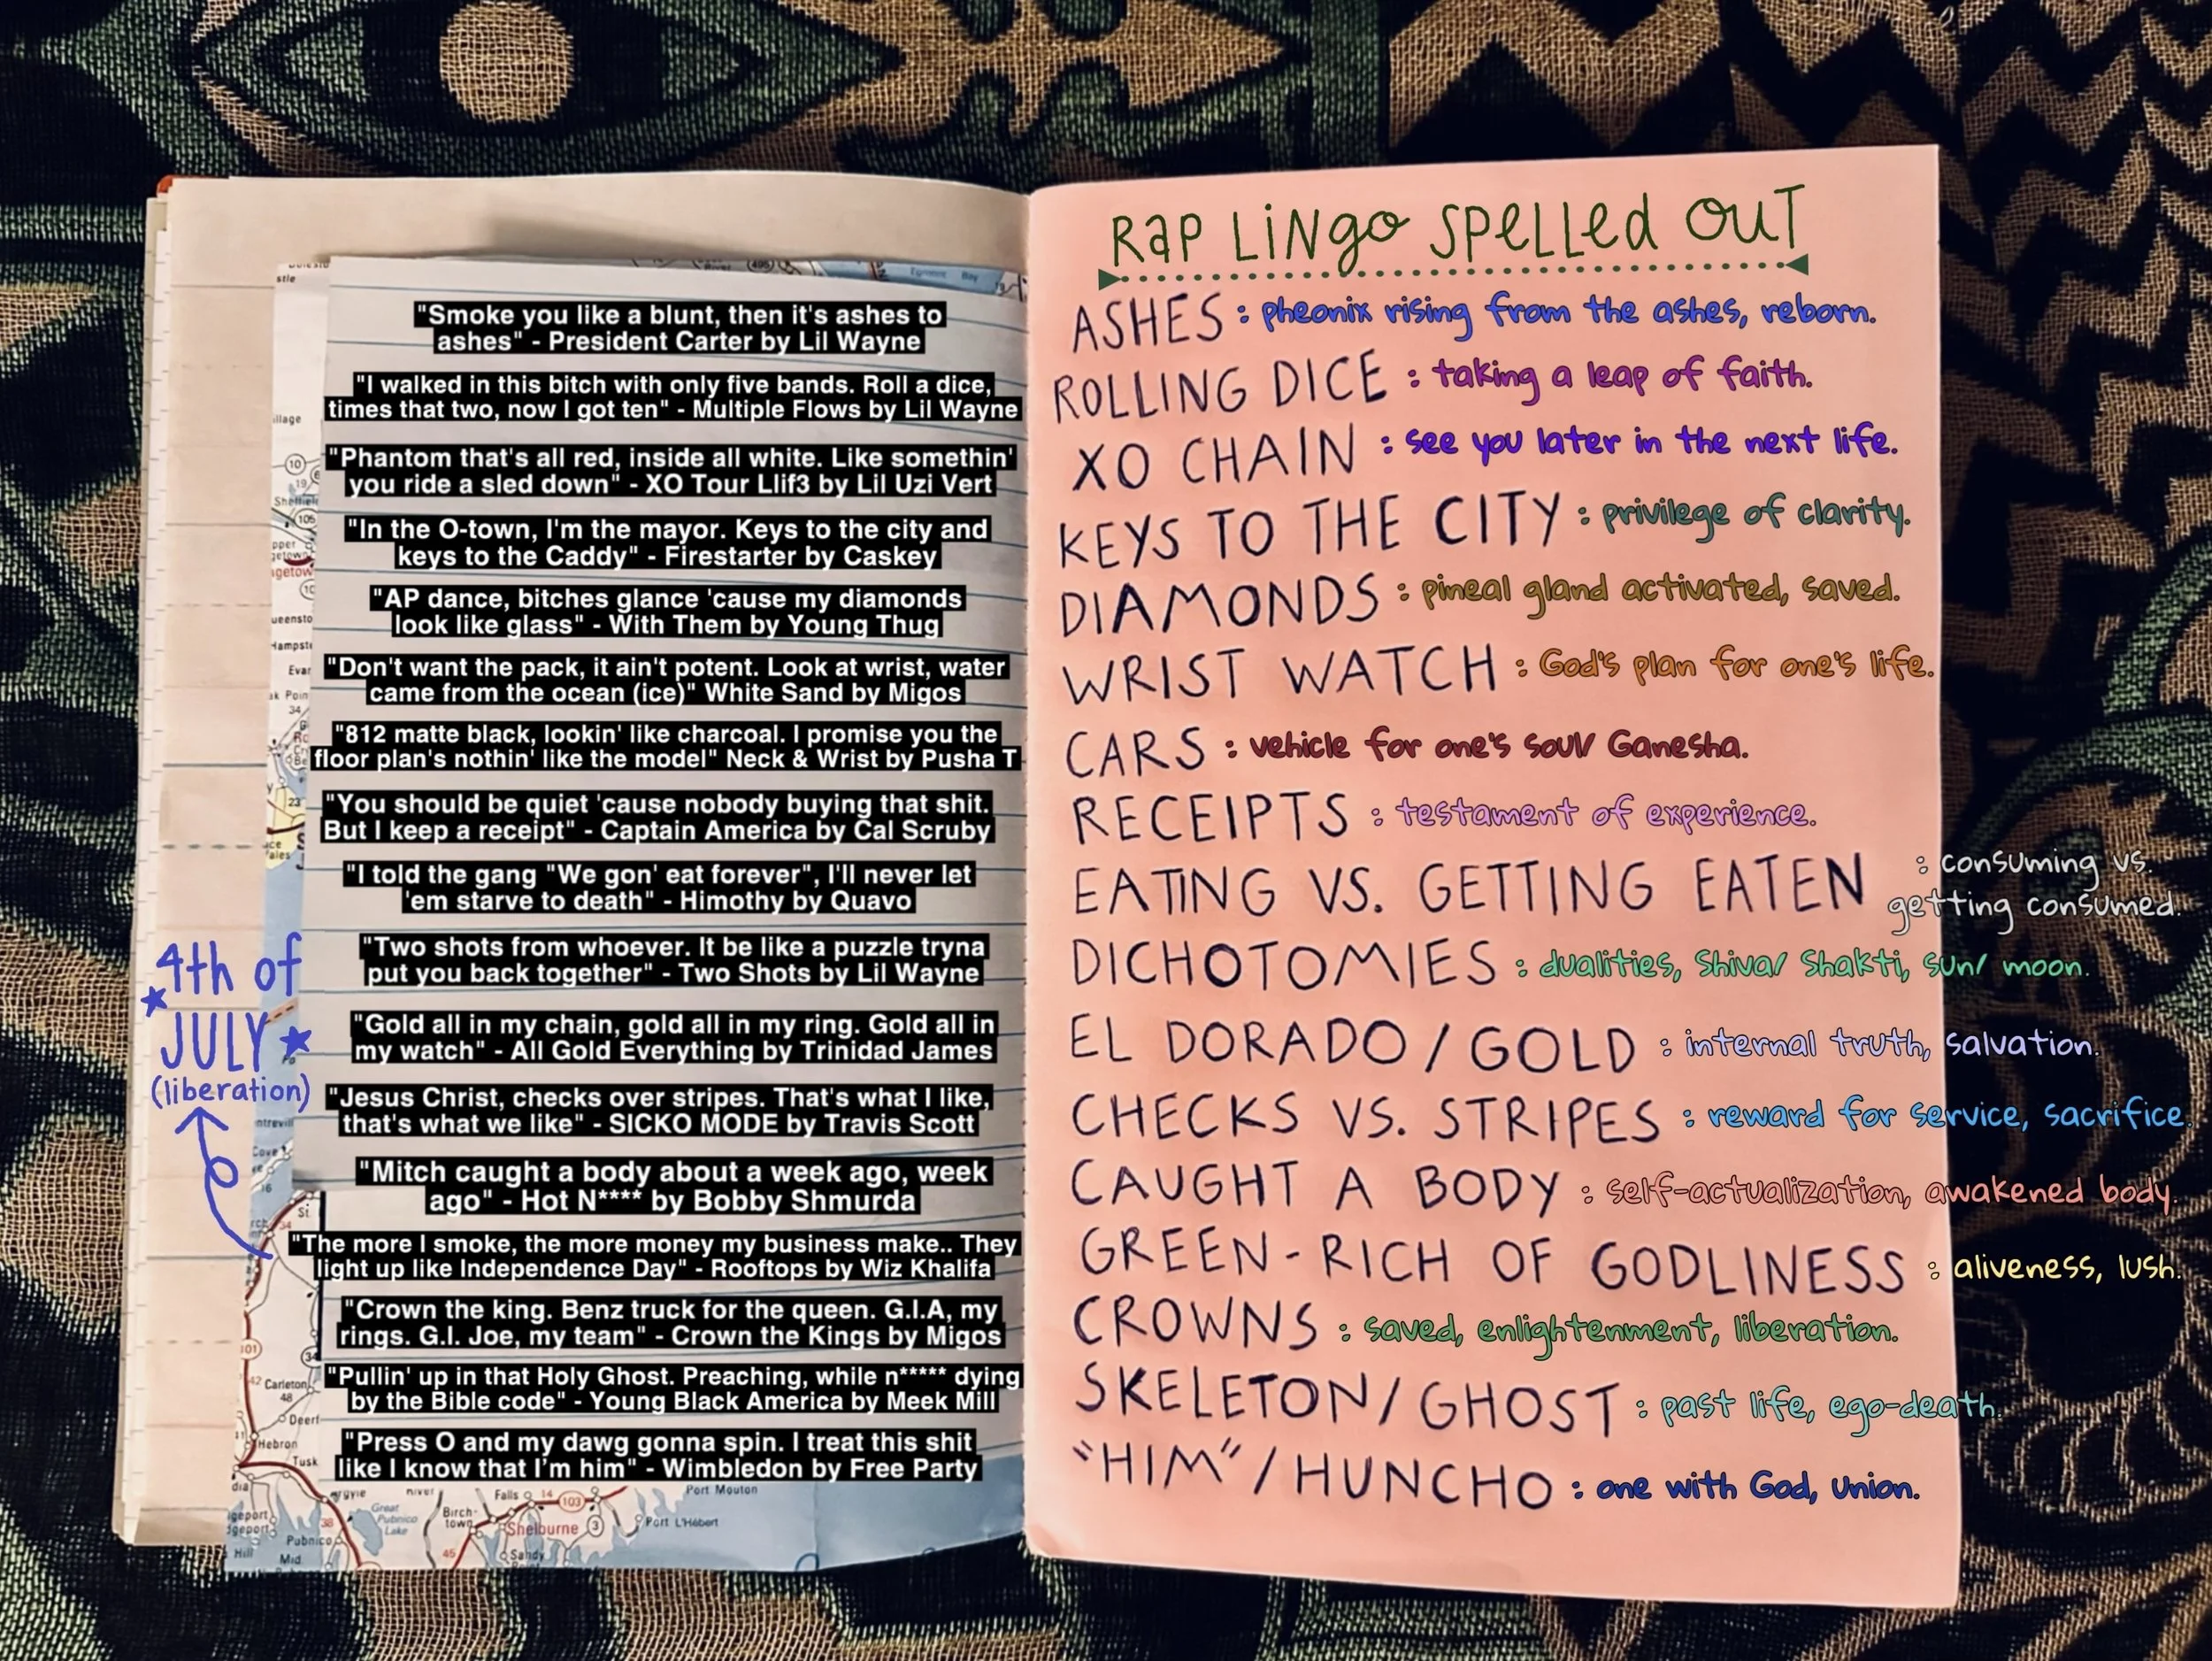 "Smoke you like a blunt, then it's ashes to
ashes" - President Carter by Lil Wayne
"I walked in this bitch with only five bands. Roll a dice,
times that two, now I got ten" - Multiple Flows by Lil Wayne
"Phantom that's all red, inside all white. Like somethin'
you ride a sled down" - XO Tour Llif3 by Lil Uzi Vert
"In the O-town, I'm the mayor. Keys to the city and
keys to the Caddy" - Firestarter by Caskey
"AP dance, bitches glance 'cause my diamonds
look like glass" - With Them by Young Thug
"Don't want the pack, it ain't potent. Look at wrist, water
came from the ocean (ice)" White Sand by Migos
"812 matte black, lookin' like charcoal. I promise you the
floor plan's nothin' like the model" Neck & Wrist by Pusha T
"You should be quiet 'cause nobody buying that shit.
But I keep a receipt" - Captain America by Cal Scruby
"I told the gang "We gon' eat forever", I'll never let
'em starve to death" - Himothy by Quavo
"Two shots from whoever. It be like a puzzle tryna
put you back together" - Two Shots by Lil Wayne
"Gold all in my chain, gold all in my ring. Gold all in
my watch" - All Gold Everything by Trinidad James
"Jesus Christ, checks over stripes. That's what I like,
that's what we like" - SICKO MODE by Travis Scott
"Mitch caught a body about a week ago, week
ago" - Hot N**** by Bobby Shmurda
"The more I smoke, the more money my business make.. They
light up like Independence Day" - Rooftops by Wiz Khalifa
"Crown the king. Benz truck for the queen. G.I.A, my
rings. G.I. Joe, my team" - Crown the Kings by Migos
"Pullin' up in that Holy Ghost. Preaching, while n***** dying
by the Bible code" - Young Black America by Meek Mill
"Press O and my dawg gonna spin. I treat this shit
like I know that I'm him" - Wimbledon by Free Party
4th of
JULY
(liberation)
Carleton
48
Hebron
Tusk
Pubnico
Great
Pubnico
Lake
Birch-
town
Falls
14
103
Shelburne
3
45
Sandy
Port Mouton
Port L'Hébert
RaP LiNgo SPeLLed OUT
ASHES : pheonix rising from the ashes, reborn.
ROLLING DICE : taking a leap of faith.
XO CHAIN : see you later in the next life.
KEYS TO THE CITY : privilege of clarity.
DIAMONDS : pineal gland activated, saved.
WRIST WATCH : God's plan for one's life.
CARS : vehicle for one's soul/ Ganesha.
RECEIPTS : testament of experience.
EATING VS. GETTING EATEN : consuming vs.
getting consumed.
DICHOTOMIES : dualities, Shiva/ Shakti, sun/ moon.
EL DORADO / GOLD : internal truth, salvation.
CHECKS VS. STRIPES : reward for service, sacrifice.
CAUGHT A BODY : self-actualization, awakened body.
GREEN-RICH OF GODLINESS : aliveness, lush.
CROWNS : saved, enlightenment, liberation.
SKELETON/GHOST : past life, ego-death.
"HIM"/HUNCHO : one with God, union.